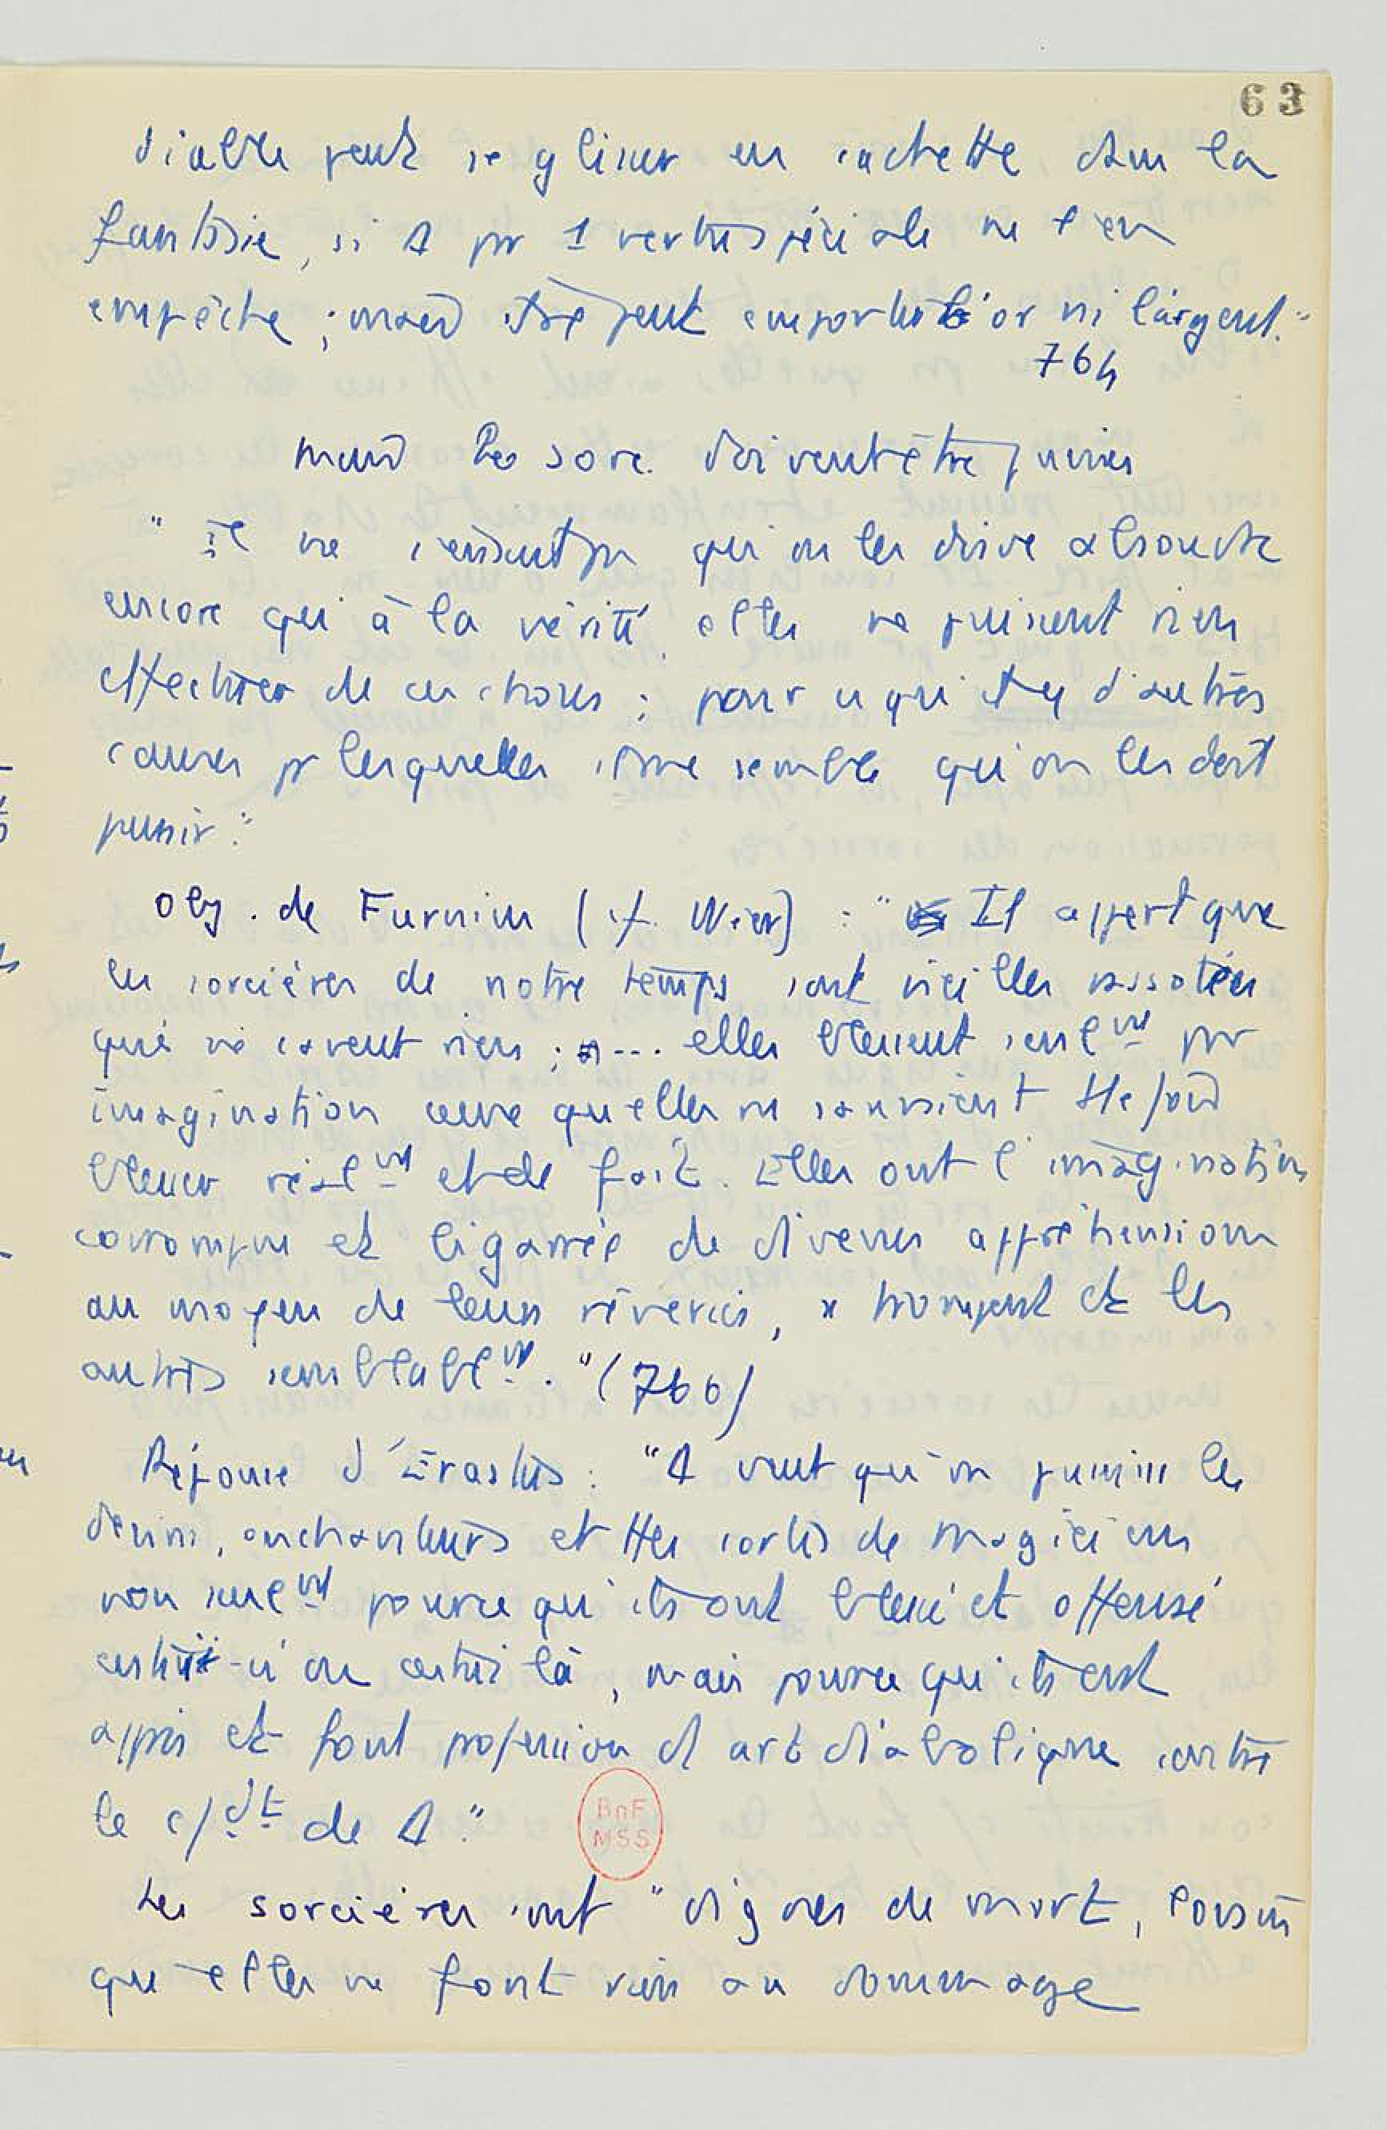 63
diable peut se glisser en cachette dans la
fantaisie, si Δ par 1 vertu spéciale ne l'en
empêche ; mais il ne peut emporter l'or ni l'argent."
764
mais les sorc. doivent être punies
" Il ne s'ensuit pas qu'on les doive absoudre
encore qu'à la vérité elles ne puissent rien
effectuer de ces choses ; pour ce qu'il y a d'autres
causes pr lesquelles il me semble qu'on les doit
punir."
Obj. de Furnius (cf. Wier) : " Il appert que
les sorcières de notre temps sont vieilles rassotées
qui ne savent rien ; ... elles blessent seulemt par
imagination ceux qu'elles ne sauraient
blesser réellemt et de fait. Elles ont l'imagination
corrompue et bigarrée de diverses appréhensions
au moyen de leurs rêveries, se trompent et les
autres semblablemt." (766)
Réponse d'Erastus : "Δ veut qu'on punisse les
devins, enchanteurs et ttes sortes de magiciens
non seulemt pource qu'ils ont blessé et offensé
cestui-ci ou cestui là, mais pource qu'ils ont
appris et font profession d'art diabolique contre
le c/dt de Δ."
Les sorcières sont "dignes de mort, combien
qu'elles ne font rien au dommage
BnF
MSS